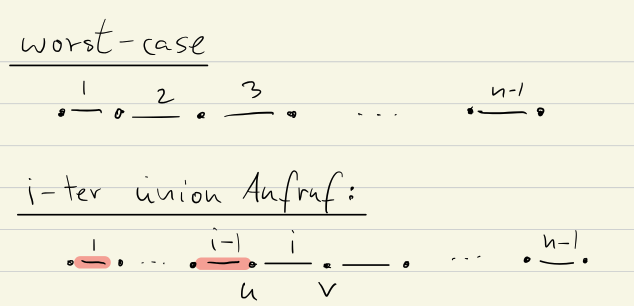 worst-case
1 2 3 ... n-1
i-ter union Aufruf:
1 ... i-1 i ... n-1
u v